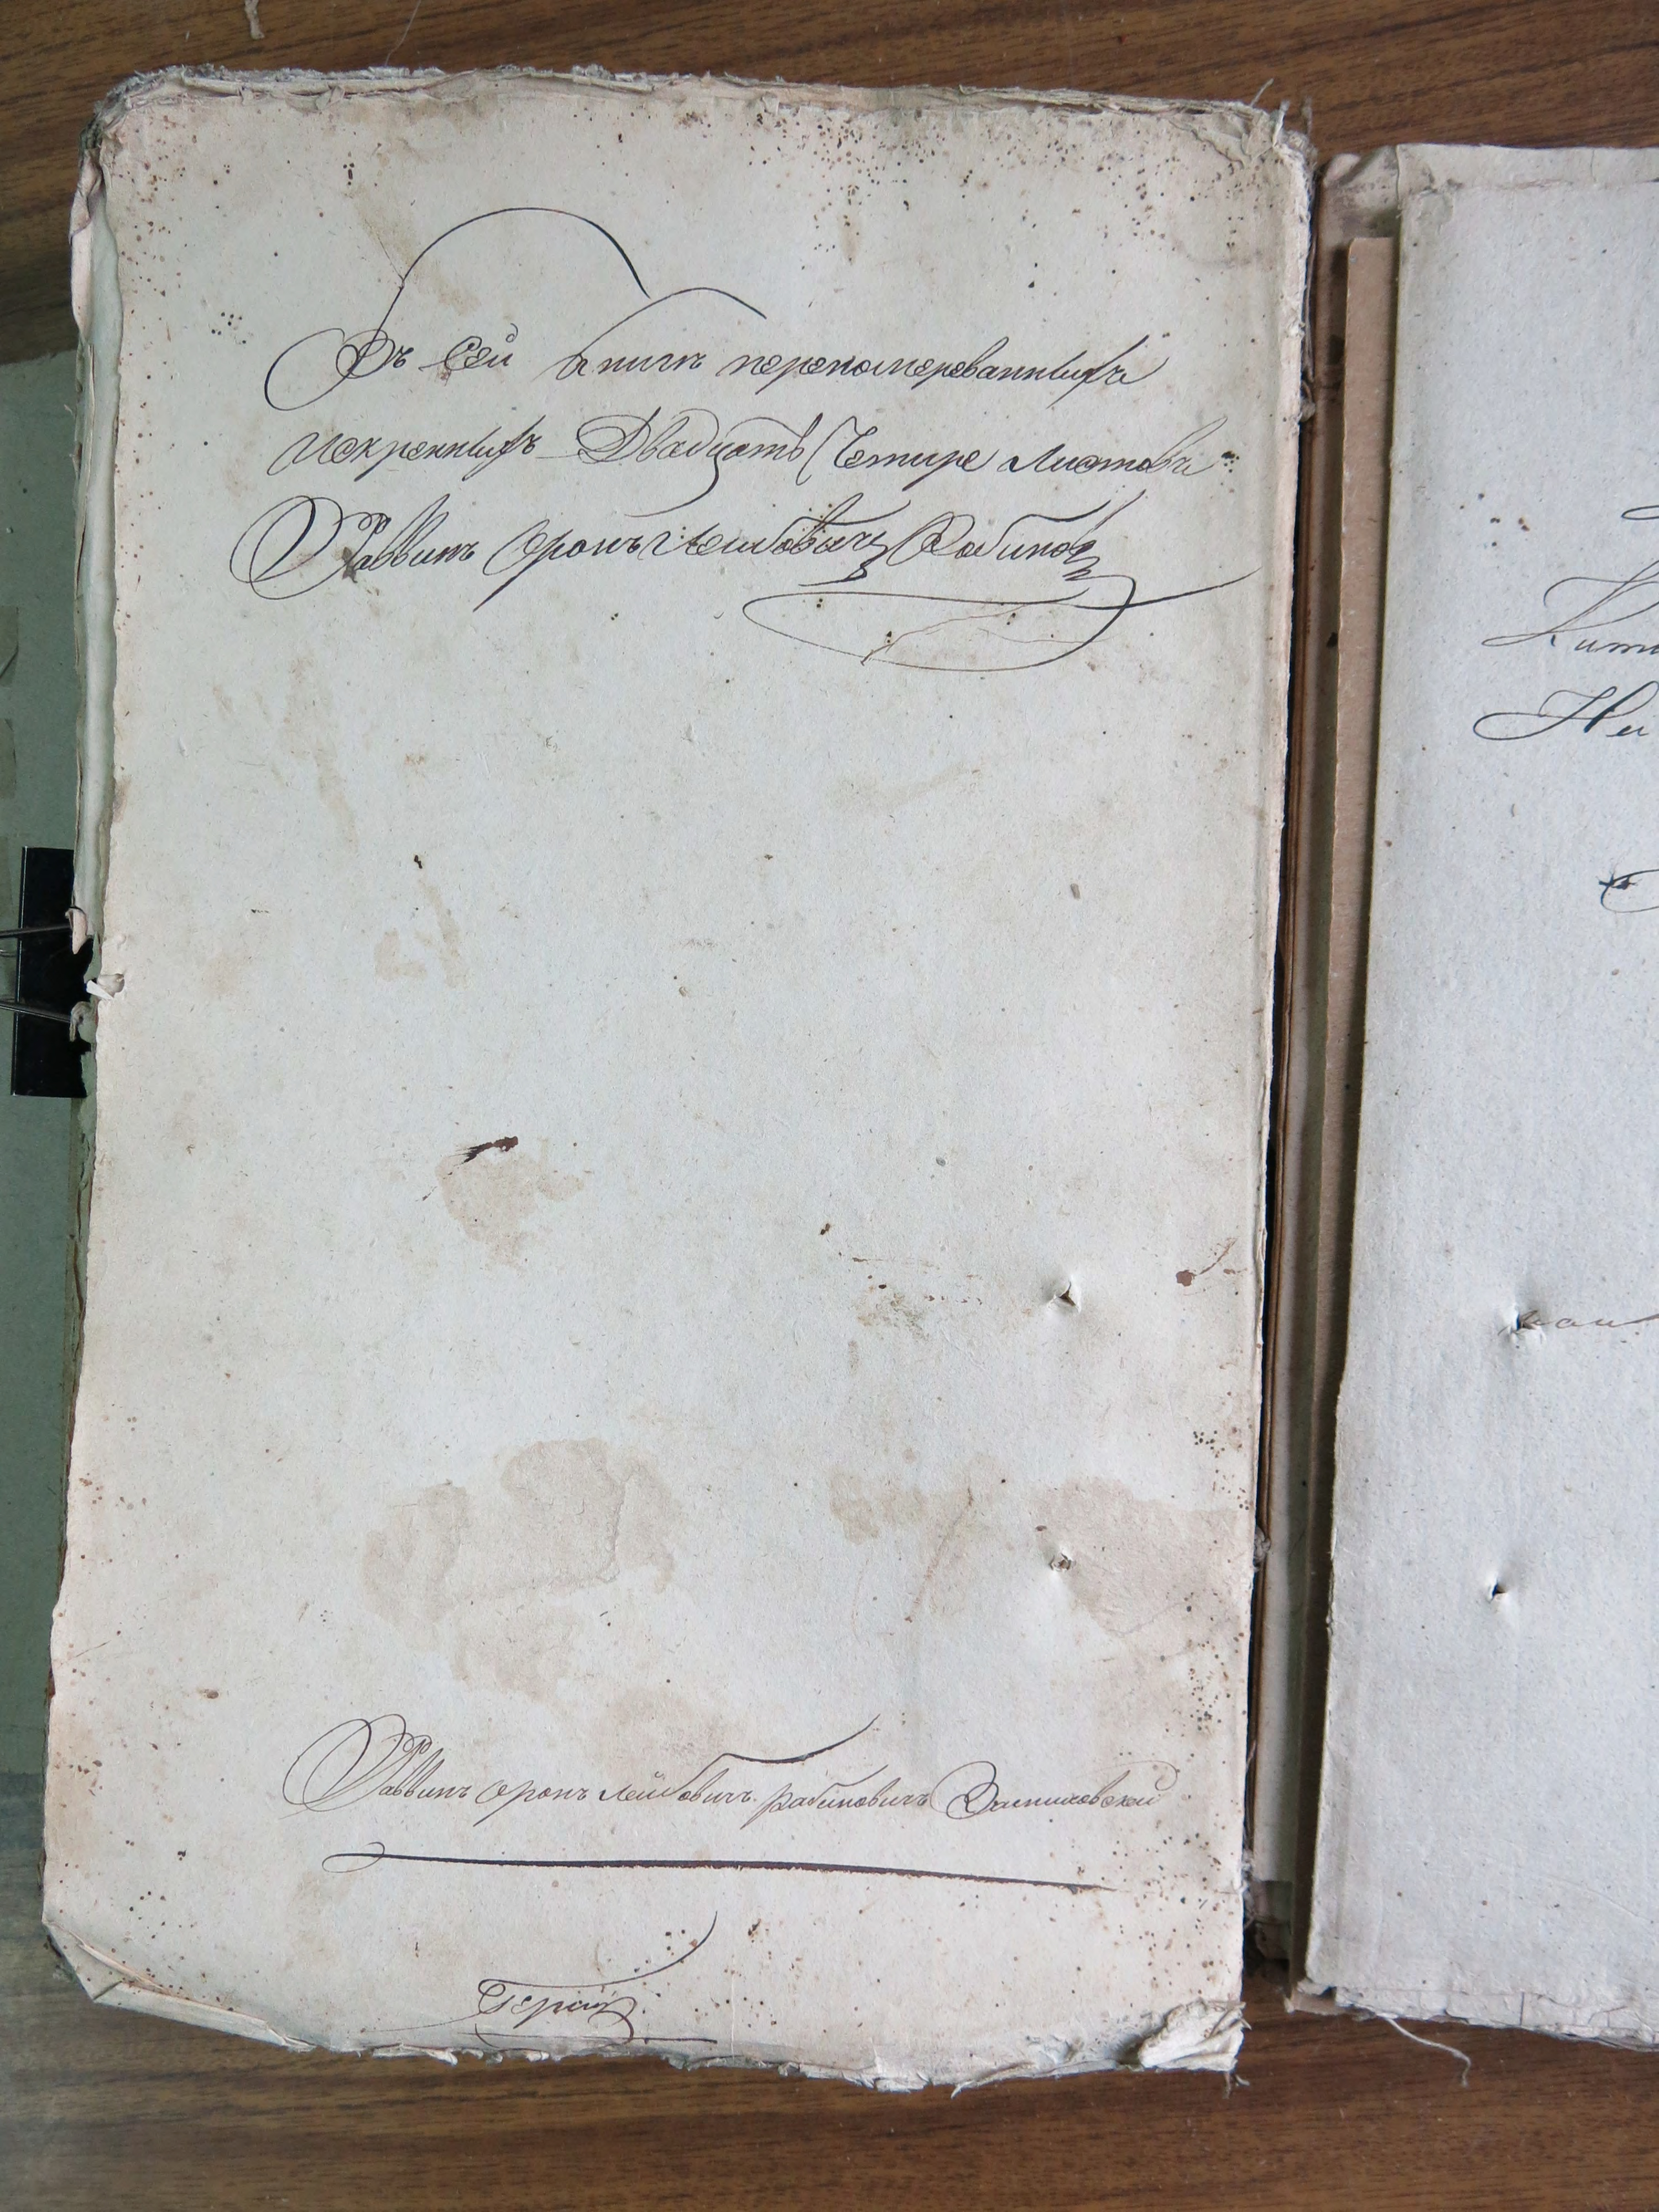 Въ Сей Книгѣ перепомереваннихъ
искреннихъ Двадцать Четире Листовъ
Раввинъ Оронъ Лейбовичъ Рабинов
Раввинъ Оронъ Лейбовичъ Рабиновичъ